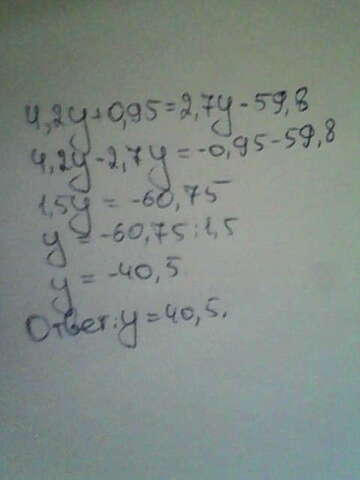 4,2y+0,95=2,7y-59,8
4,2y-2,7y=-0,95-59,8
1,5y=-60,75
y=-60,75:1,5
y=-40,5
Ответ:y=40,5.